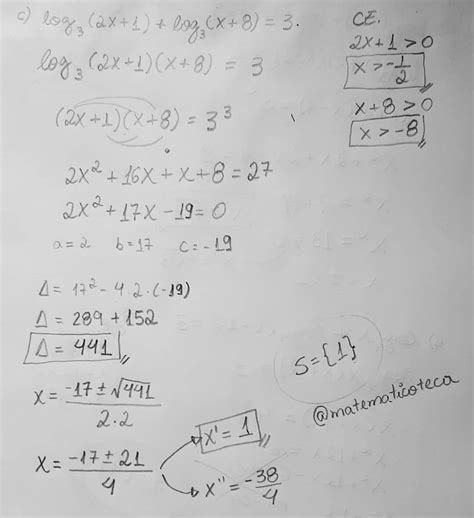 c) log₃(2x+1) + log₃(x+8) = 3.
log₃(2x+1)(x+8) = 3
(2x+1)(x+8) = 3³
2x² + 16x + x + 8 = 27
2x² + 17x - 19 = 0
a = 2 b = 17 c = -19
Δ = 17² - 4.2.(-19)
Δ = 289 + 152
Δ = 441
x = (-17 ± √441) / 2.2
x = (-17 ± 21) / 4
x' = 1
x'' = -38/4
CE.
2x+1 > 0
x > -1/2
x+8 > 0
x > -8
S = {1}
@matematicoteca